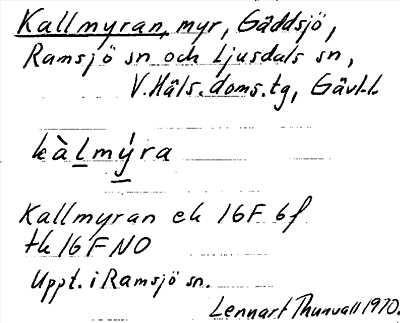 Kallmyran, myr, Gäddsjö,
Ramsjö sn och Ljusdals sn,
V. Häls. doms. tg, Gävl.l.
kàlmy̌ra
Kallmyran ek 16F 6f
tk 16F NO
Uppt. i Ramsjö sn.
Lennart Thunvall 1970.